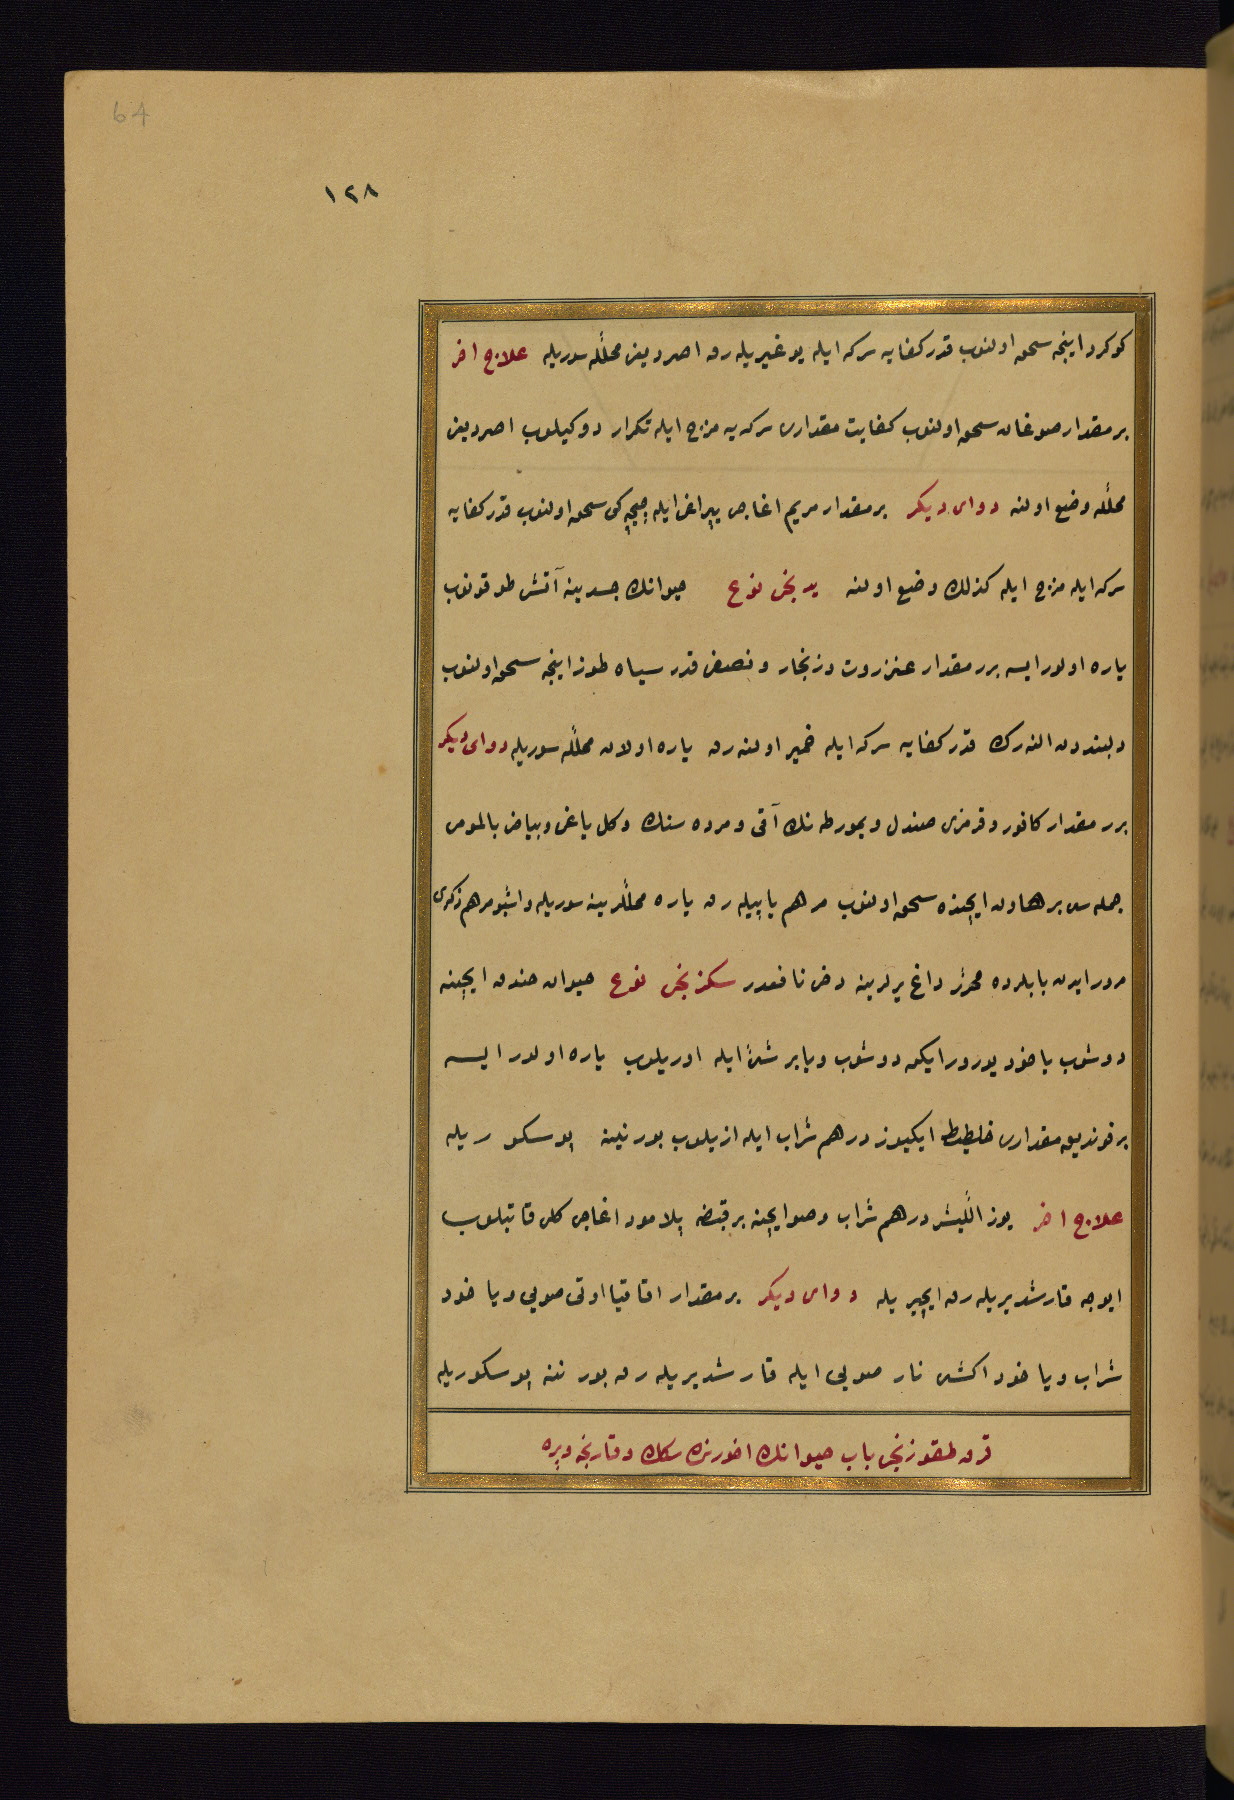 64
١٢٨
كوكرد اينجه سحق اولنوب قدر كفايه سركه ايله يوغيريله رق اصرديغى محلّله سوريله علاج اخر
بر مقدار صوغان سحق اولنوب كفايت مقدارى سركه يه مزج ايله تكرار دوكيلوب اصرديغى
محلّله وضع اولنه دواى ديكر بر مقدار مريم اغاجى يپراغى ايله چيچكى سحق اولنوب قدر كفايه
سركه ايله مزج ايله كذلك وضع اولنه يدنجى نوع حيوانك جسدينه آتش طوقونوب
ياره اولور ايسه برر مقدار عنزروت و زنجار و نصف قدر سياه طوز اينجه سحق اولنوب
دلبنددن النه رك قدر كفايه سركه ايله خمير اولنه رق ياره اولان محلّله سوريله دواى ديكر
برر مقدار كافور و قرمزى صندل و يمورطه نك آقى و مرده سنك و كل ياغى و بياض بالمومى
جمله سى بر هاون ايچنده سحق اولنوب مرهم ياپيله رق ياره محلّلرينه سوريله و اشبو مرهم ذكرى
مرور ايدن بابلرده محرّر داغ يرلرينه دخى نافعدر سكزنجى نوع حيوان خندق ايچينه
دوشوب ياخود يورور ايكن دوشوب ويا بر شئ ايله اوريلوب ياره اولور ايسه
بر فوندق مقدارى خلطيط ايكيوز درهم شراب ايله ازيلوب بورنينه پوسكوريله
علاج اخر يوز اللّيشر درهم شراب و صو ايچنه بر قبضه پلامود اغاجى كلى قاتيلوب
ايوجه قارشديريله رق ايچيريله دواى ديكر بر مقدار اقاقيا اوتى صويى ويا خود
شراب ويا خود اكشى نار صويى ايله قارشديريله رق بورننه پوسكوريله
قرق طقوزنجى باب حيوانك اخورنده سكك و قارنجه و پره